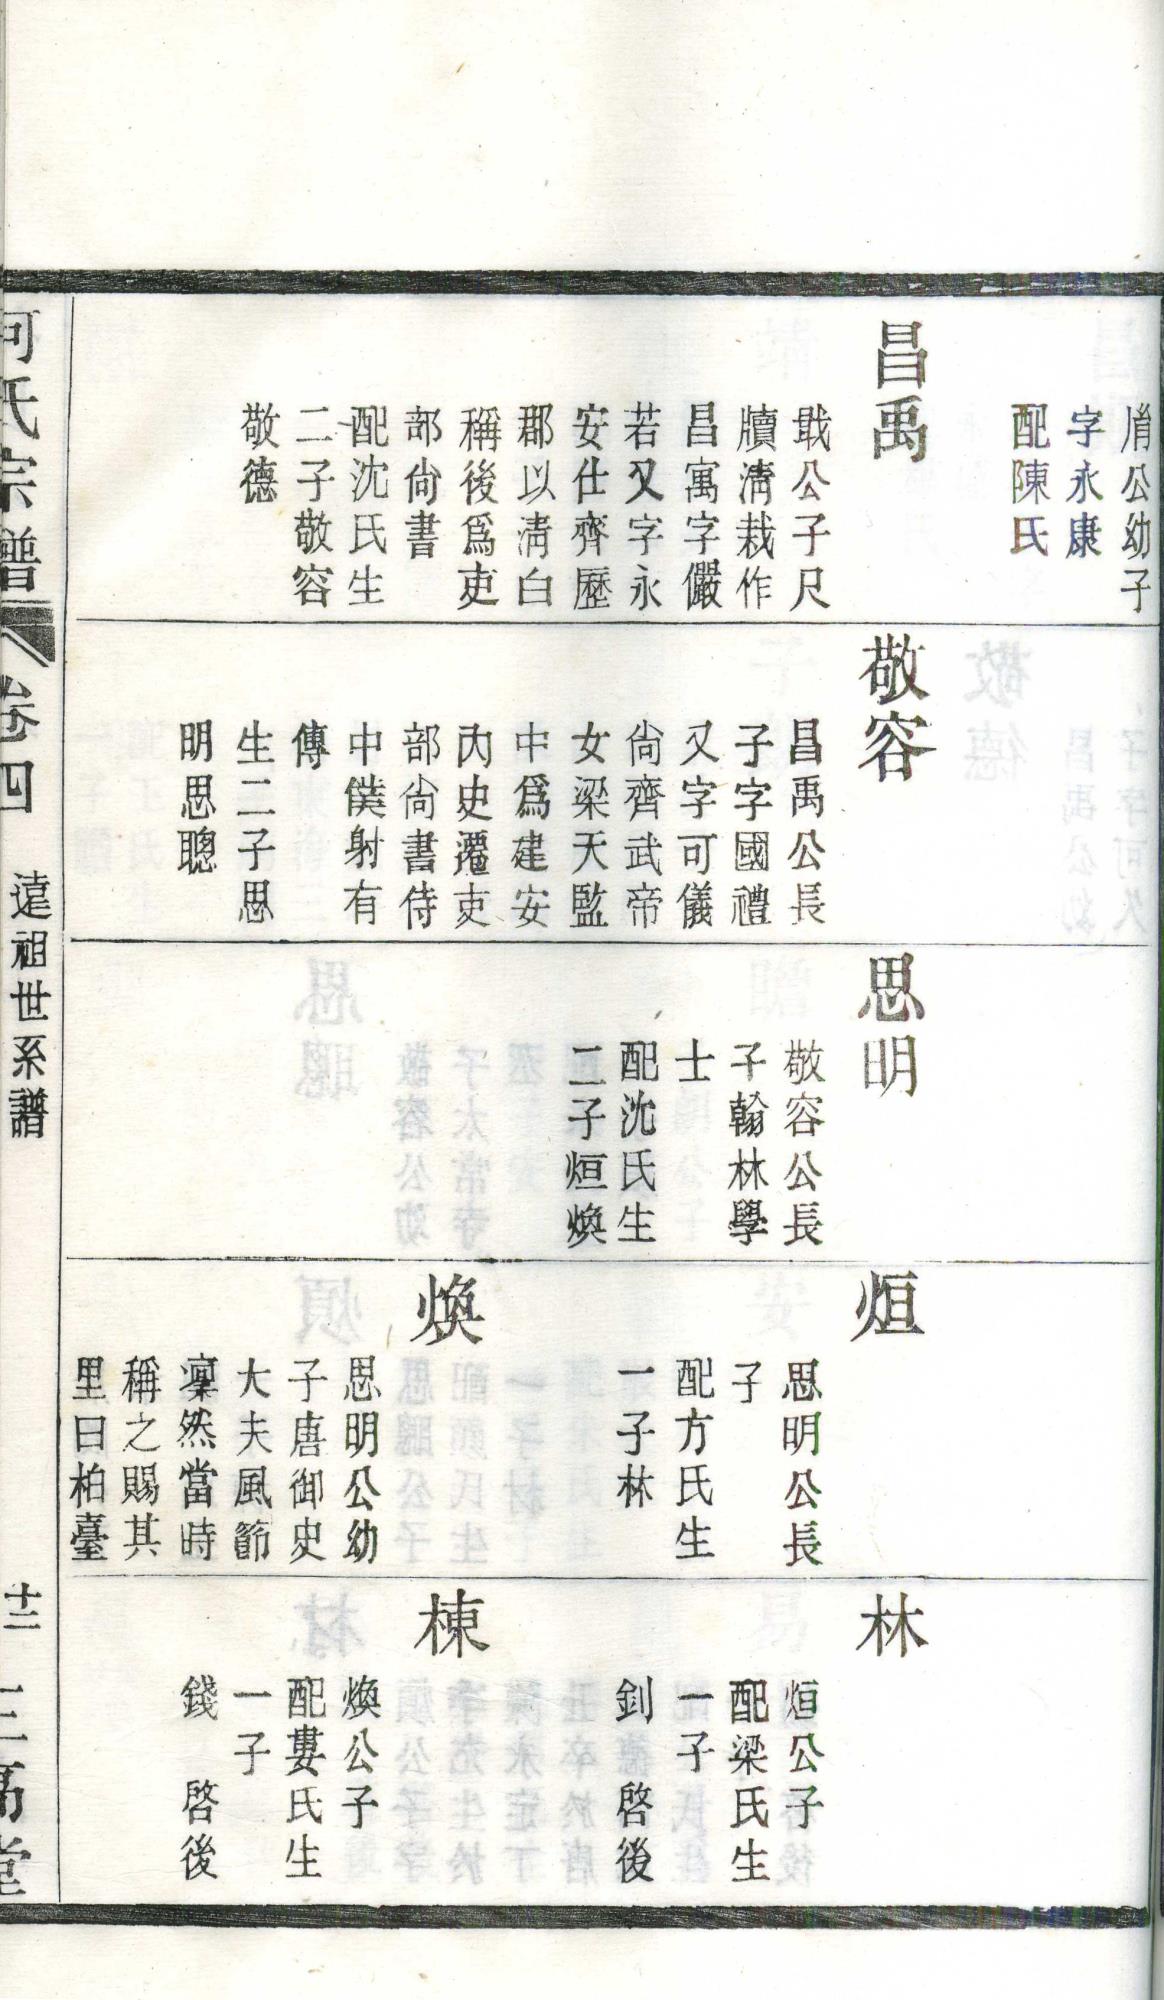 胤公幼子
字永康
配陳氏
昌禹
戢公子尺
牘淸栽作
昌寓字儼
若又字永
安仕齊歷
郡以淸白
稱後爲吏
部尙書
配沈氏生
二子敬容
敬德
敬容
昌禹公長
子字國禮
又字可儀
尙齊武帝
女梁天監
中爲建安
內史遷吏
部尙書侍
中僕射有
傳
生二子思
明思聰
思明
敬容公長
子翰林學
士
配沈氏生
二子烜煥
烜
思明公長
子
配方氏生
一子林
煥
思明公幼
子唐御史
大夫風節
凜然當時
稱之賜其
里曰柏臺
林
烜公子
配梁氏生
一子
釗 啓後
棟
煥公子
配婁氏生
一子
錢 啓後
何氏宗譜 卷四 遠祖世系譜 十二 三高堂